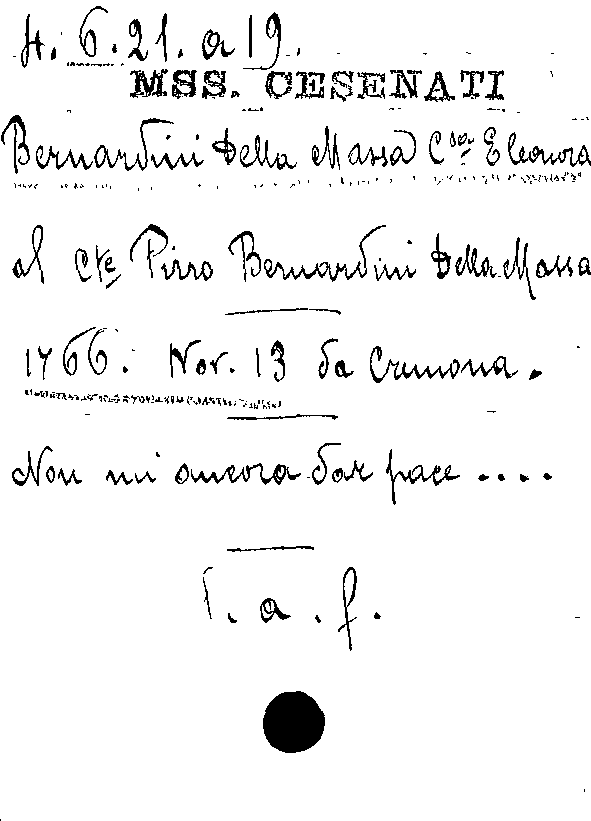 4. 6. 21. a 19.
MSS. CESENATI
Bernardini Della Massa C.ssa Eleonora
al Cte Pirro Bernardini Della Massa
1766. Nov. 13 da Cremona.
Non mi ancora dar pace ....
l. a. f.